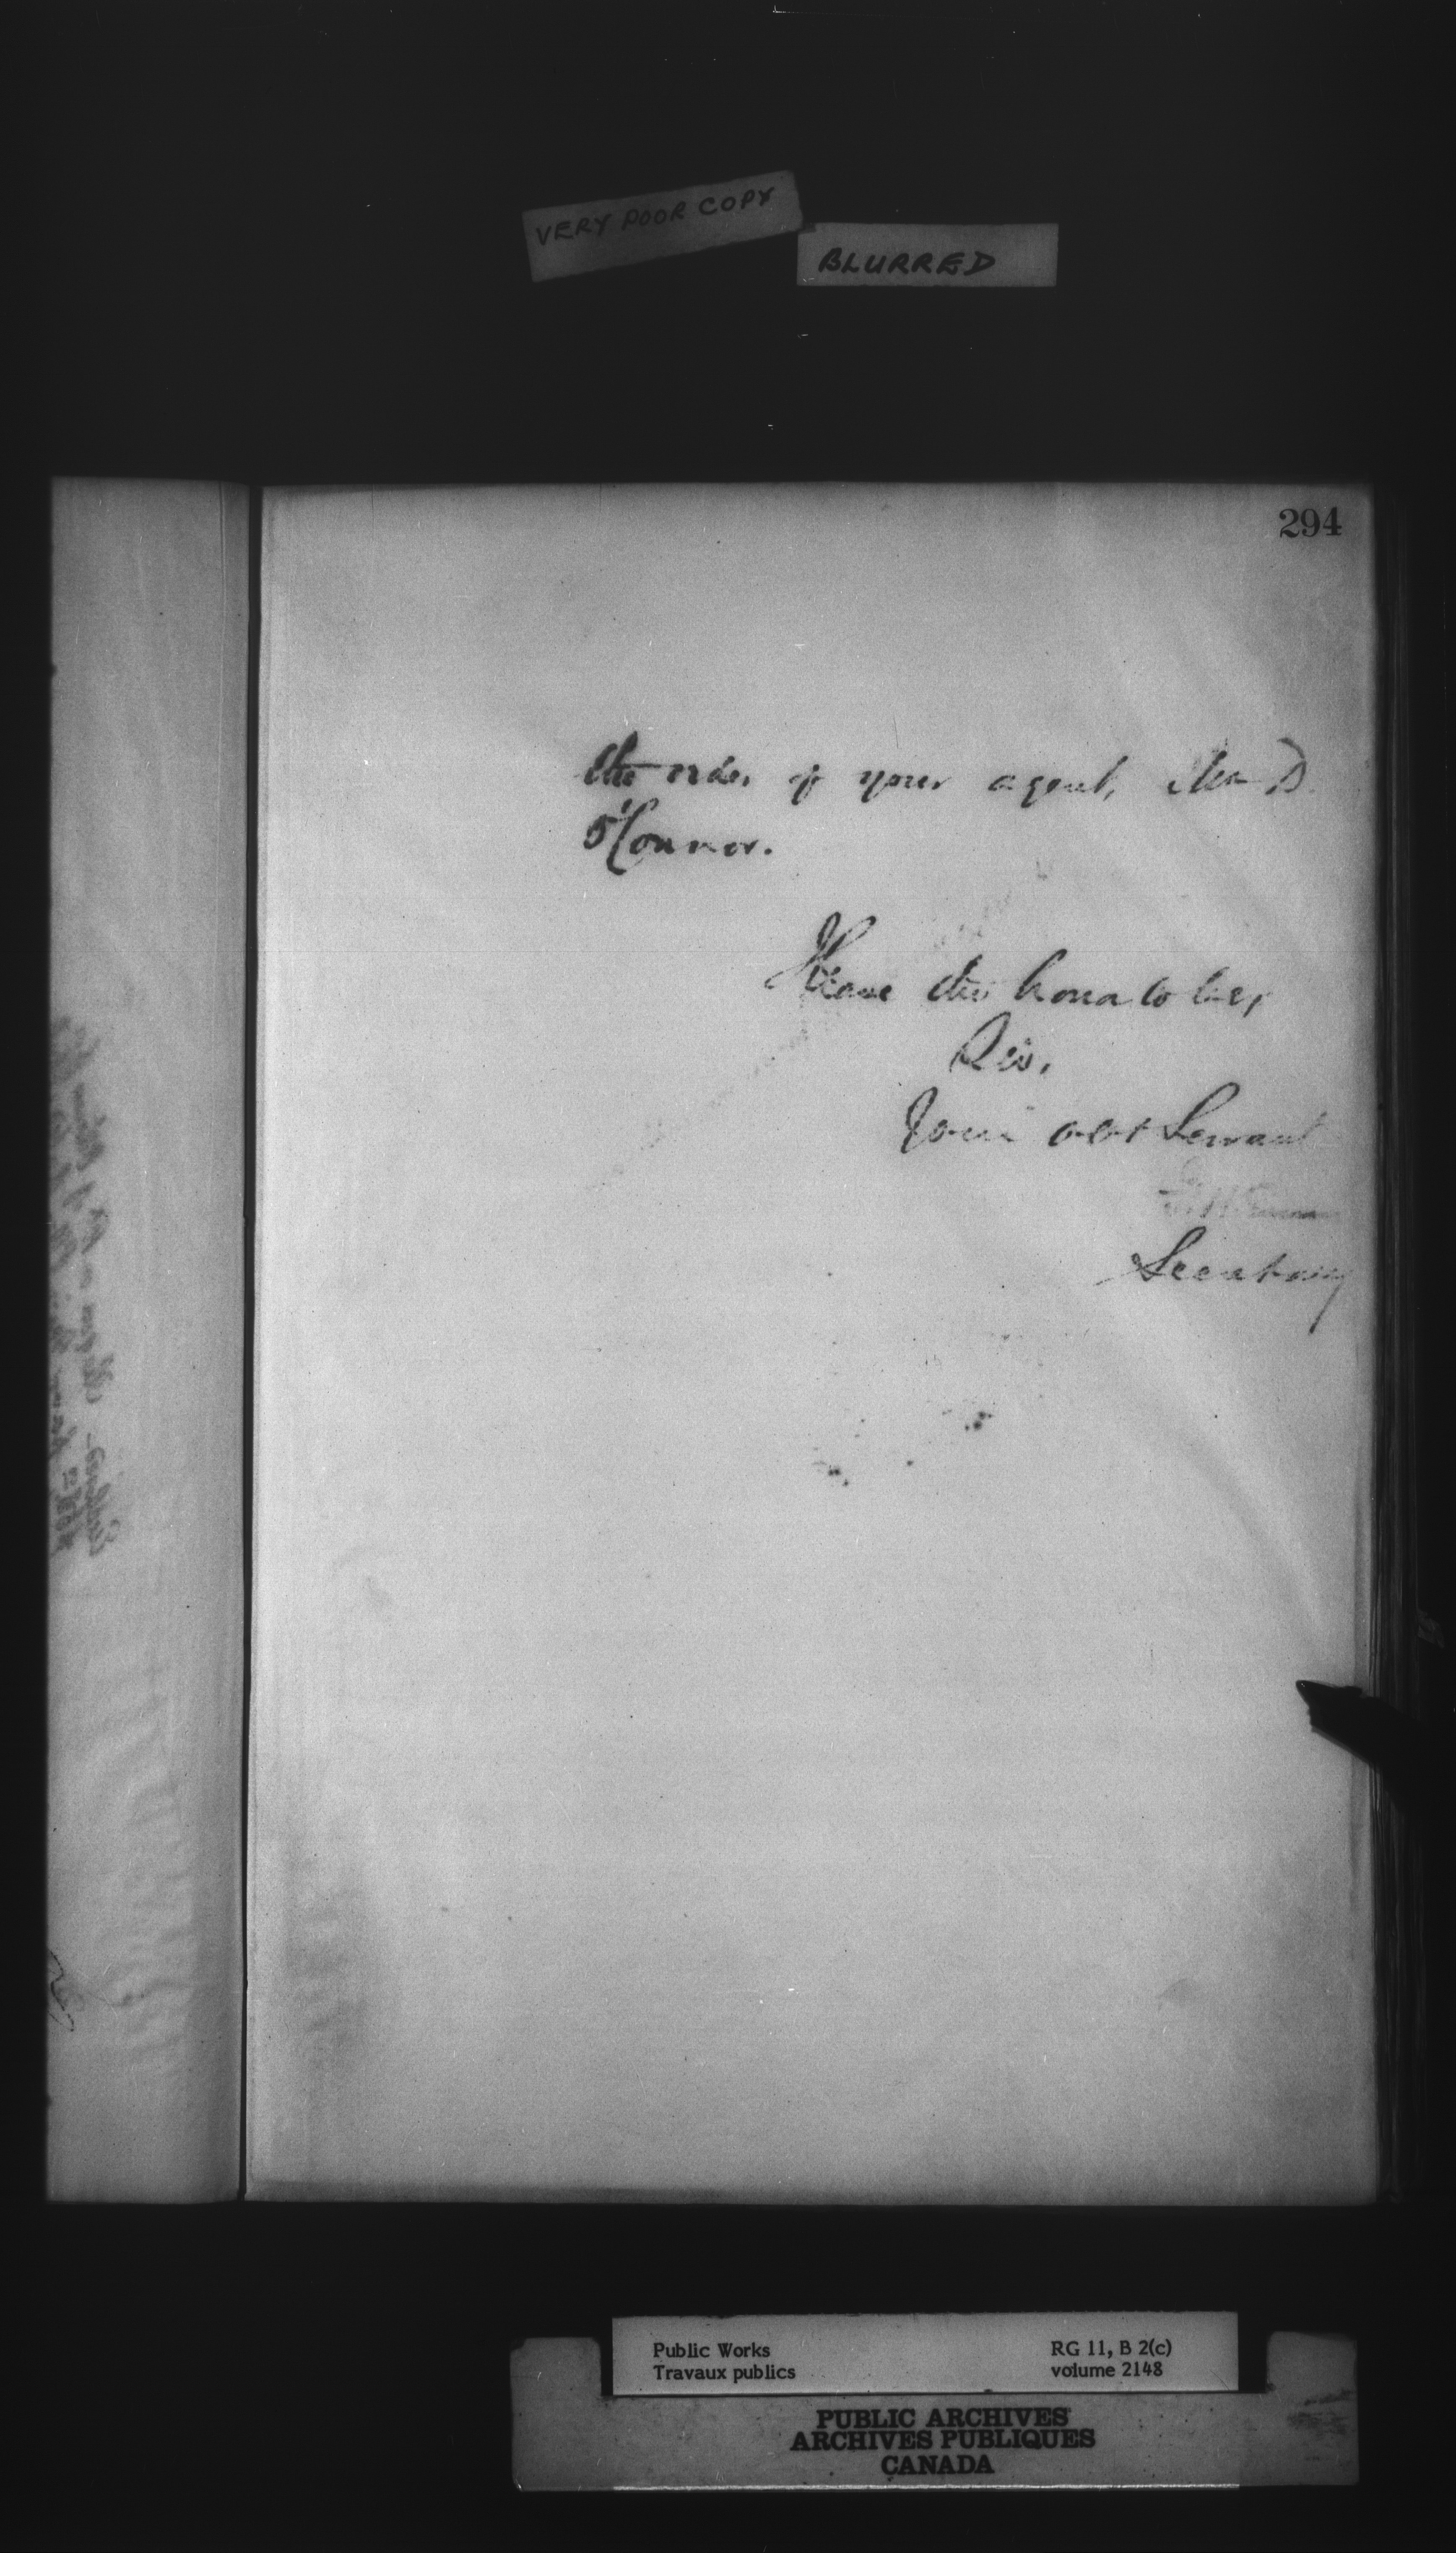 VERY POOR COPY
BLURRED
294
the order of your agent, Mr D.
O'Connor.
I have the honor to be,
Sir,
Your obt Servant
Secretary
Public Works
Travaux publics
RG 11, B 2(c)
volume 2148
PUBLIC ARCHIVES
ARCHIVES PUBLIQUES
CANADA